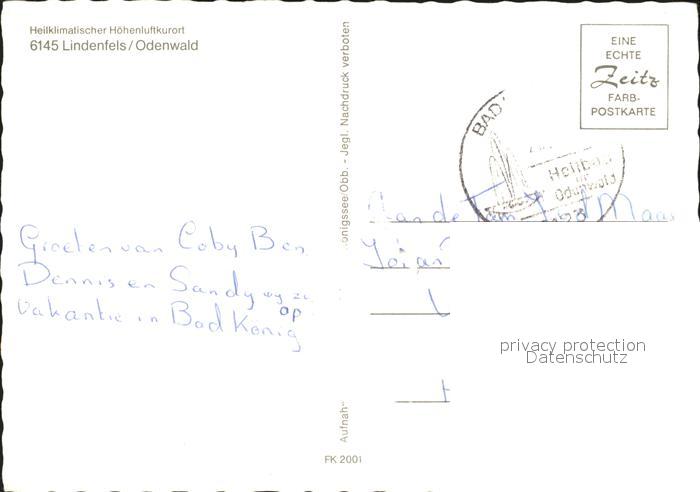 Heilklimatischer Höhenluftkurort
6145 Lindenfels / Odenwald
Groeten van Coby Ben
Dennis en Sandy
op
vakantie in Bad Konig
Königssee/Obb. - Jegl. Nachdruck verboten
FK 2001
EINE
ECHTE
Zeitz
FARB-
POSTKARTE
BAD
Odenwald
Aan de Fam Maas
privacy protection
Datenschutz